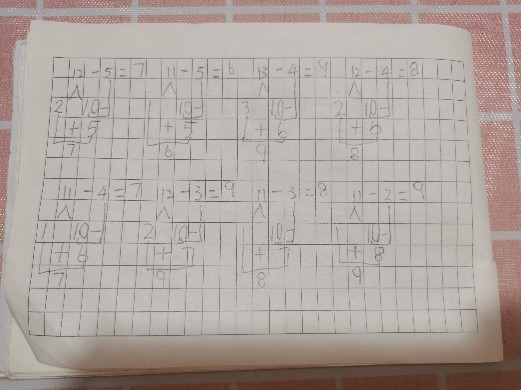 12-5=7 11-5=6 13-4=9 12-4=8
2 10- 1 10- 3 10- 2 10-
+5 +5 +6 +6
7 6 9 8
11-4=7 12-3=9 11-3=8 11-2=9
1 10- 2 10- 1 10- 1 10-
+6 +7 +7 +8
7 9 8 9